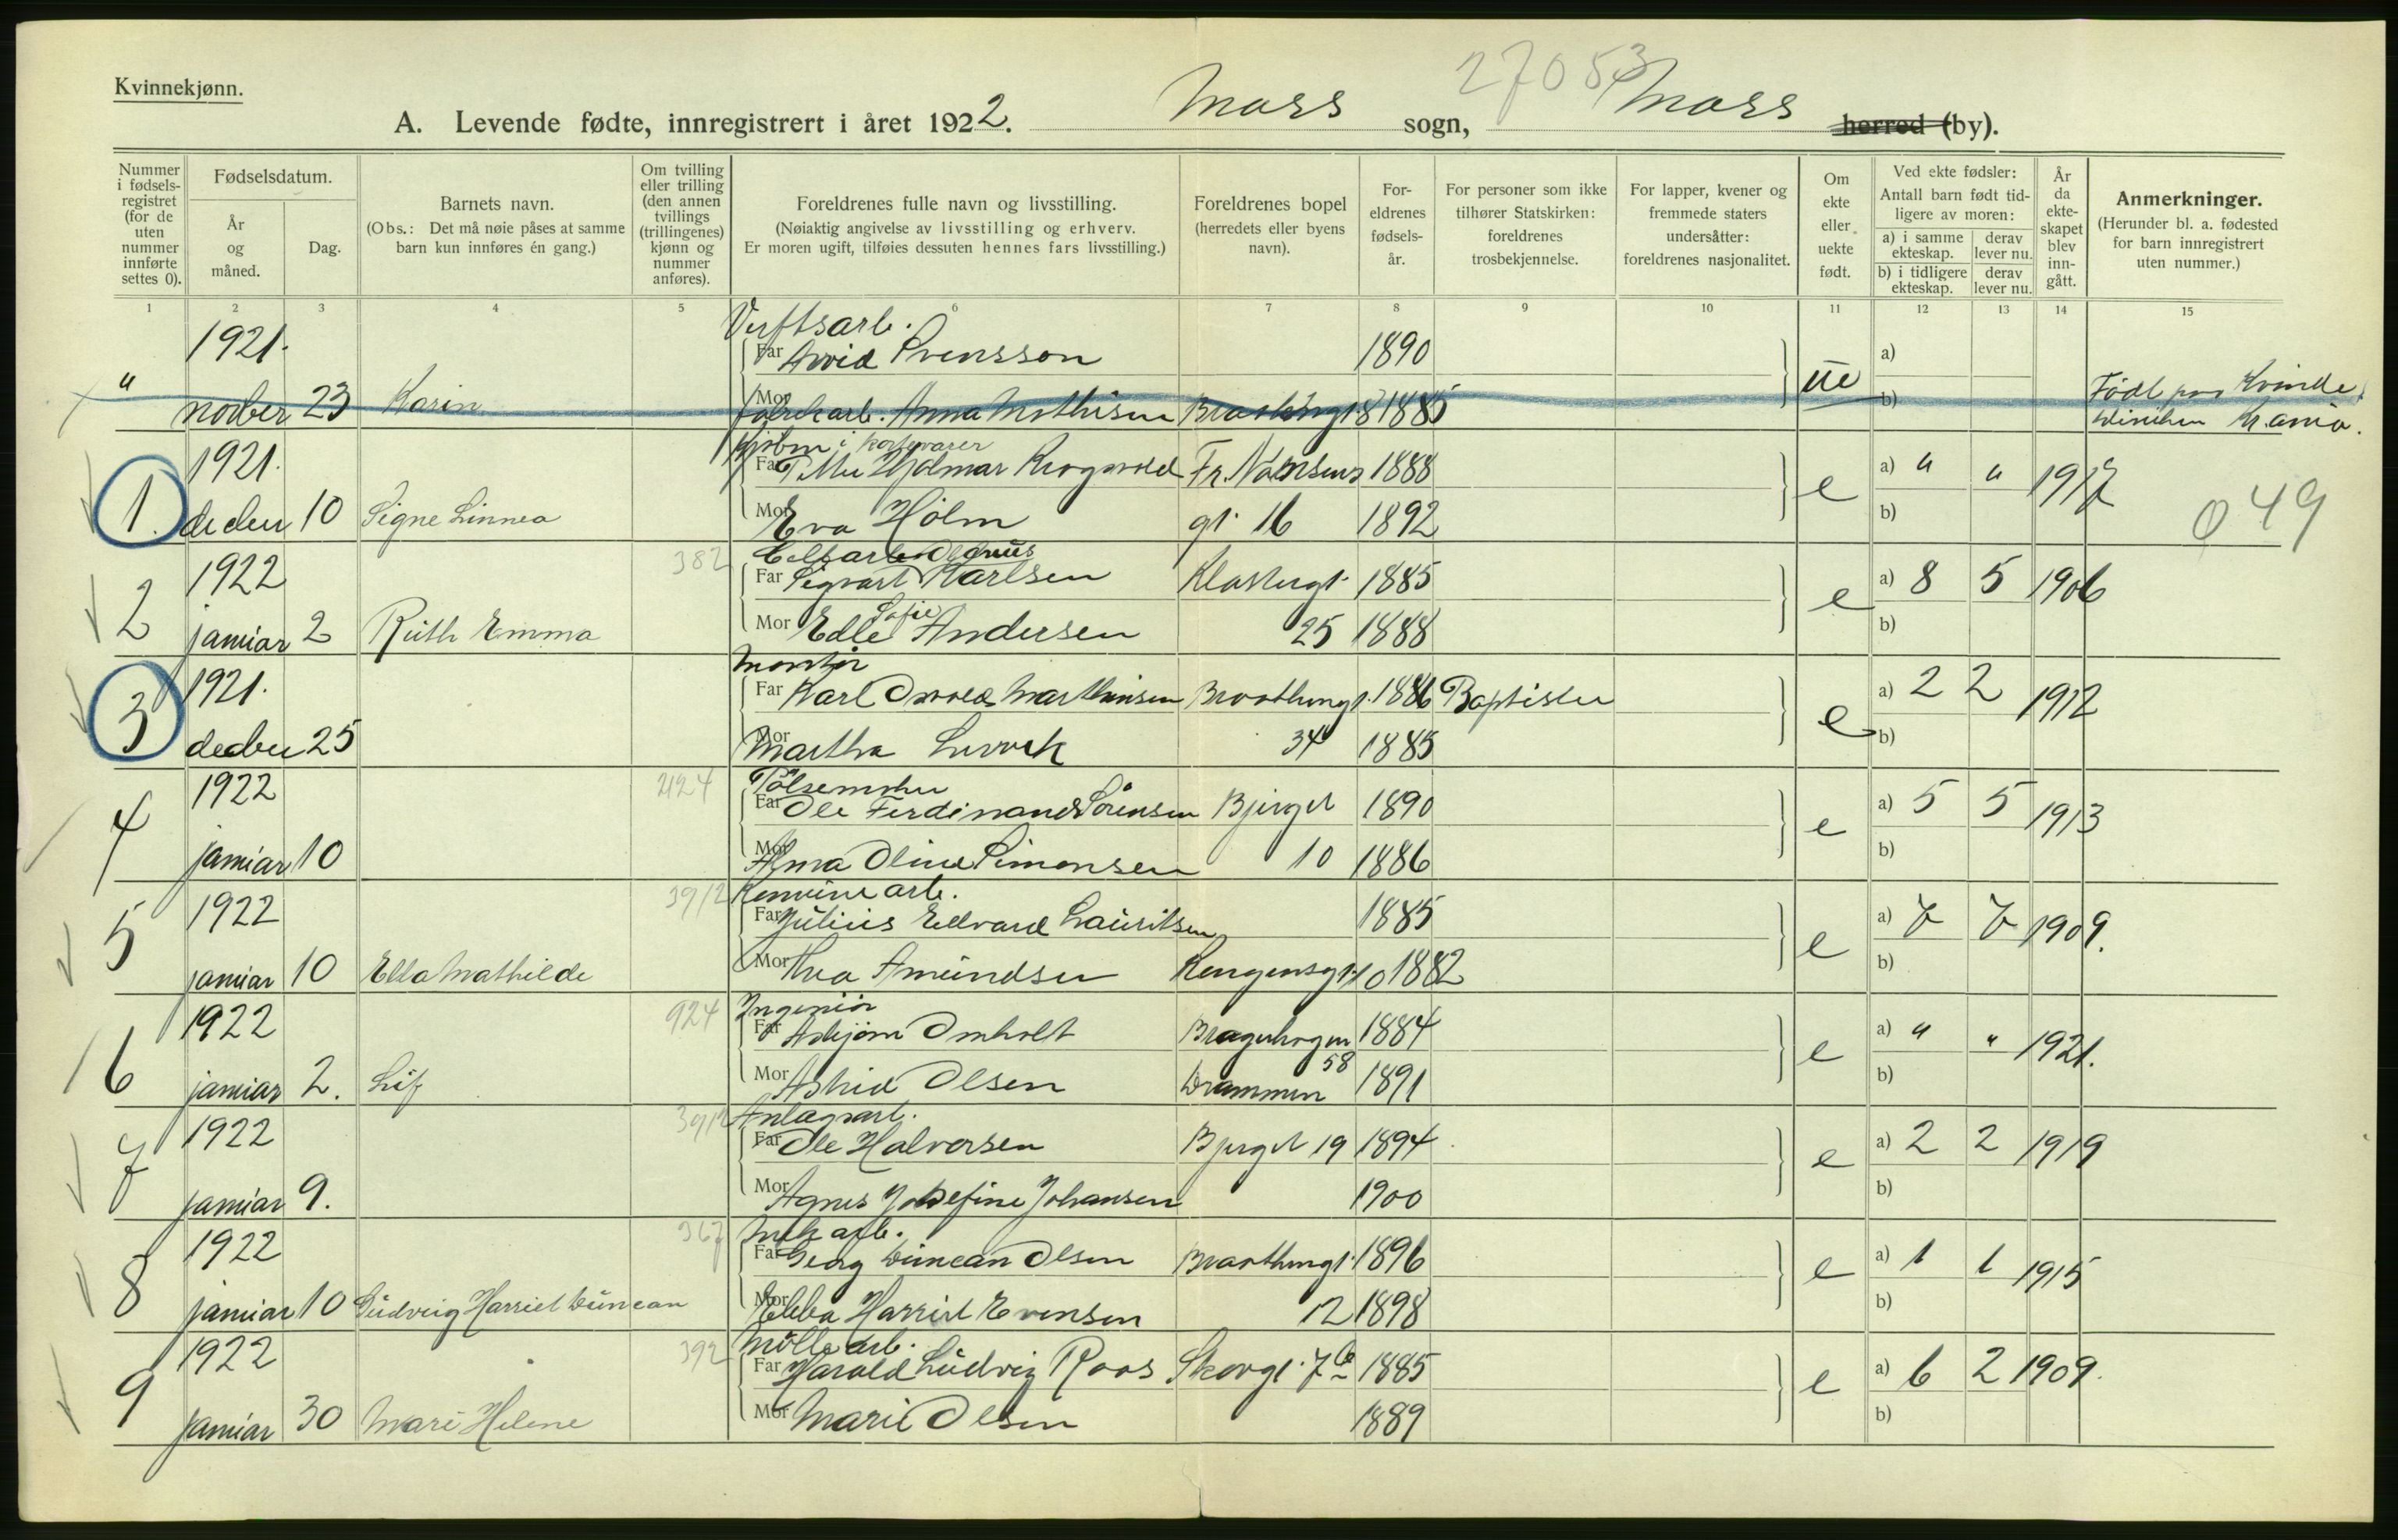 Kvinnekjønn.
27053
A. Levende fødte, innregistrert i året 1922. Moss sogn, Moss herred (by).
Nummer i fødselsregistret (for de uten nummer innførte settes 0).
Fødselsdatum.
År og måned.
Dag.
Barnets navn.
(Obs.: Det må nøie påses at samme barn kun innføres én gang.)
Om tvilling eller trilling (den annen tvillings (trillingenes) kjønn og nummer anføres).
Foreldrenes fulle navn og livsstilling.
(Nøiaktig angivelse av livsstilling og erhverv.
Er moren ugift, tilføies dessuten hennes fars livsstilling.)
Foreldrenes bopel (herredets eller byens navn).
Foreldrenes fødselsår.
For personer som ikke tilhører Statskirken: foreldrenes trosbekjennelse.
For lapper, kvener og fremmede staters undersåtter: foreldrenes nasjonalitet.
Om ekte eller uekte født.
Ved ekte fødsler:
Antall barn født tidligere av moren:
a) i samme ekteskap.
derav lever nu.
b) i tidligere ekteskap.
derav lever nu.
År da ekteskapet blev inngått.
Anmerkninger.
(Herunder bl. a. fødested for barn innregistrert uten nummer.)
1 2 3 4 5 6 7 8 9 10 11 12 13 14 15
Verftsarb.
1921. Far Arvid Svensson 1890 ue a)
" novber 23 Karin Mor fabrikarb. Anna Mathisen 1885 b) Född paa Kvinde
klinikken Kr.ania.
1921. Far Hjalmar Krogsvold Fr. Nansens 1888 e a) " " 1917
1. decber 10 Signe Linnea Mor Eva Holm gt. 16 1892 b) 049
382
1922 Far Sigvart Karlsen Klostergt. 1885 e a) 8 5 1906
2 januar 2 Ruth Emma Mor Edle Sofie Andersen 25 1888 b)
Montør
1921. Far Karl Osvald Marthinsen Braathengt. 1886 Baptister e a) 2 2 1912
3 decber 25 Mor Martha 34 1885 b)
2124 Pølsemaker
1922 Far Ole Ferdinand Sørensen Bjerget 1890 e a) 5 5 1913
4 januar 10 Mor Alma Oline Simonsen 10 1886 b)
3912 arb.
1922 Far Julius Edvard Lauritsen 1885 e a) 7 7 1909.
5 januar 10 Ella Mathilde Mor Thea Amundsen Kongensgt. 10 1882 b)
924 Ingeniør
1922 Far Asbjørn Omholt Bragerhagen 58 1884 e a) " " 1921.
6 januar 2. Lif Mor Astrid Olsen Drammen 1891 b)
3912 Anlægsarb.
1922 Far Ole Halvorsen Bjerget 19 1894 e a) 2 2 1919
7 januar 9. Mor Agnes Josefine Johansen 1900 b)
367 Mek arb.
1922 Far Georg Duncan Olsen Braathengt. 1896 e a) 1 1 1915
8 januar 10 Ludveig Harriet Duncan Mor Ebba Harriet Evensen 12 1898 b)
392 Møllearb.
1922 Far Harald Ludvig Roos Skovgt. 7b 1885 e a) 6 2 1909.
9 januar 30 Mari Helene Mor Marie Olsen 1889 b)